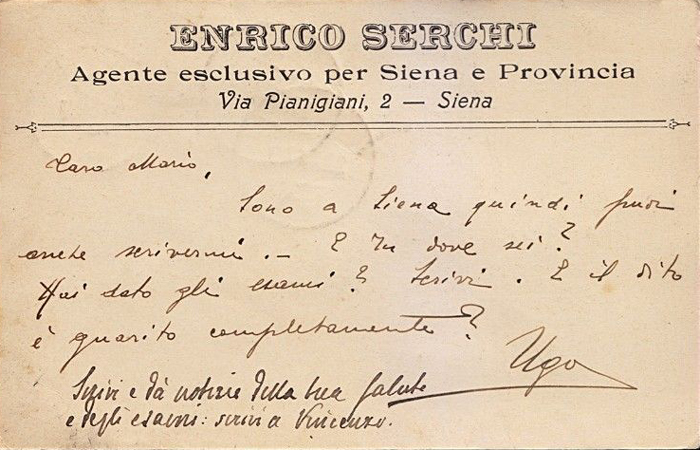 ENRICO SERCHI
Agente esclusivo per Siena e Provincia
Via Pianigiani, 2 — Siena
Caro Mario,
Sono a Siena quindi puoi
anche scrivermi. — E Tu dove sei?
Hai dato gli esami? Scrivi. E il dito
è guarito completamente?
Ugo
Scrivi e dà notizie della tua salute
e degli esami: scrivi a Vincenzo.